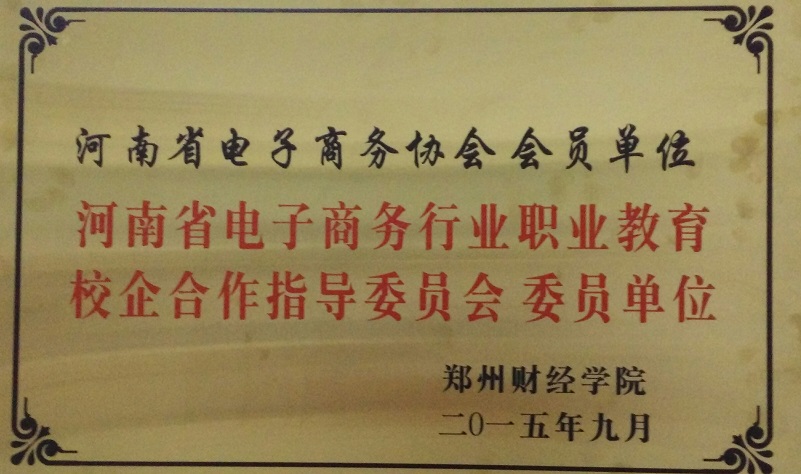 河南省电子商务协会 会员单位
河南省电子商务行业职业教育
校企合作指导委员会 委员单位
郑州财经学院
二〇一五年九月